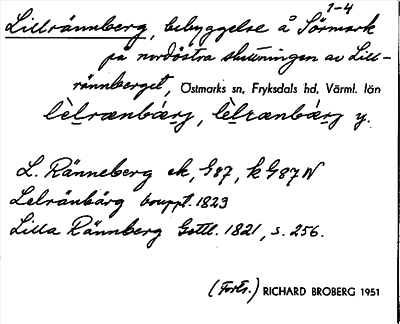 1-4
Lillrännberg, bebyggelse å Sörmark
på nordöstra sluttningen av Lill-
rännberget, Östmarks sn, Fryksdals hd, Värml. län
lèlrænbárj, lèlrænbárj y.
L. Ränneberg ek, G87, k G87 N
Lelränbärg bouppt. 1823
Lilla Rännberg Gottl. 1821, s. 256.
(Forts.) RICHARD BROBERG 1951